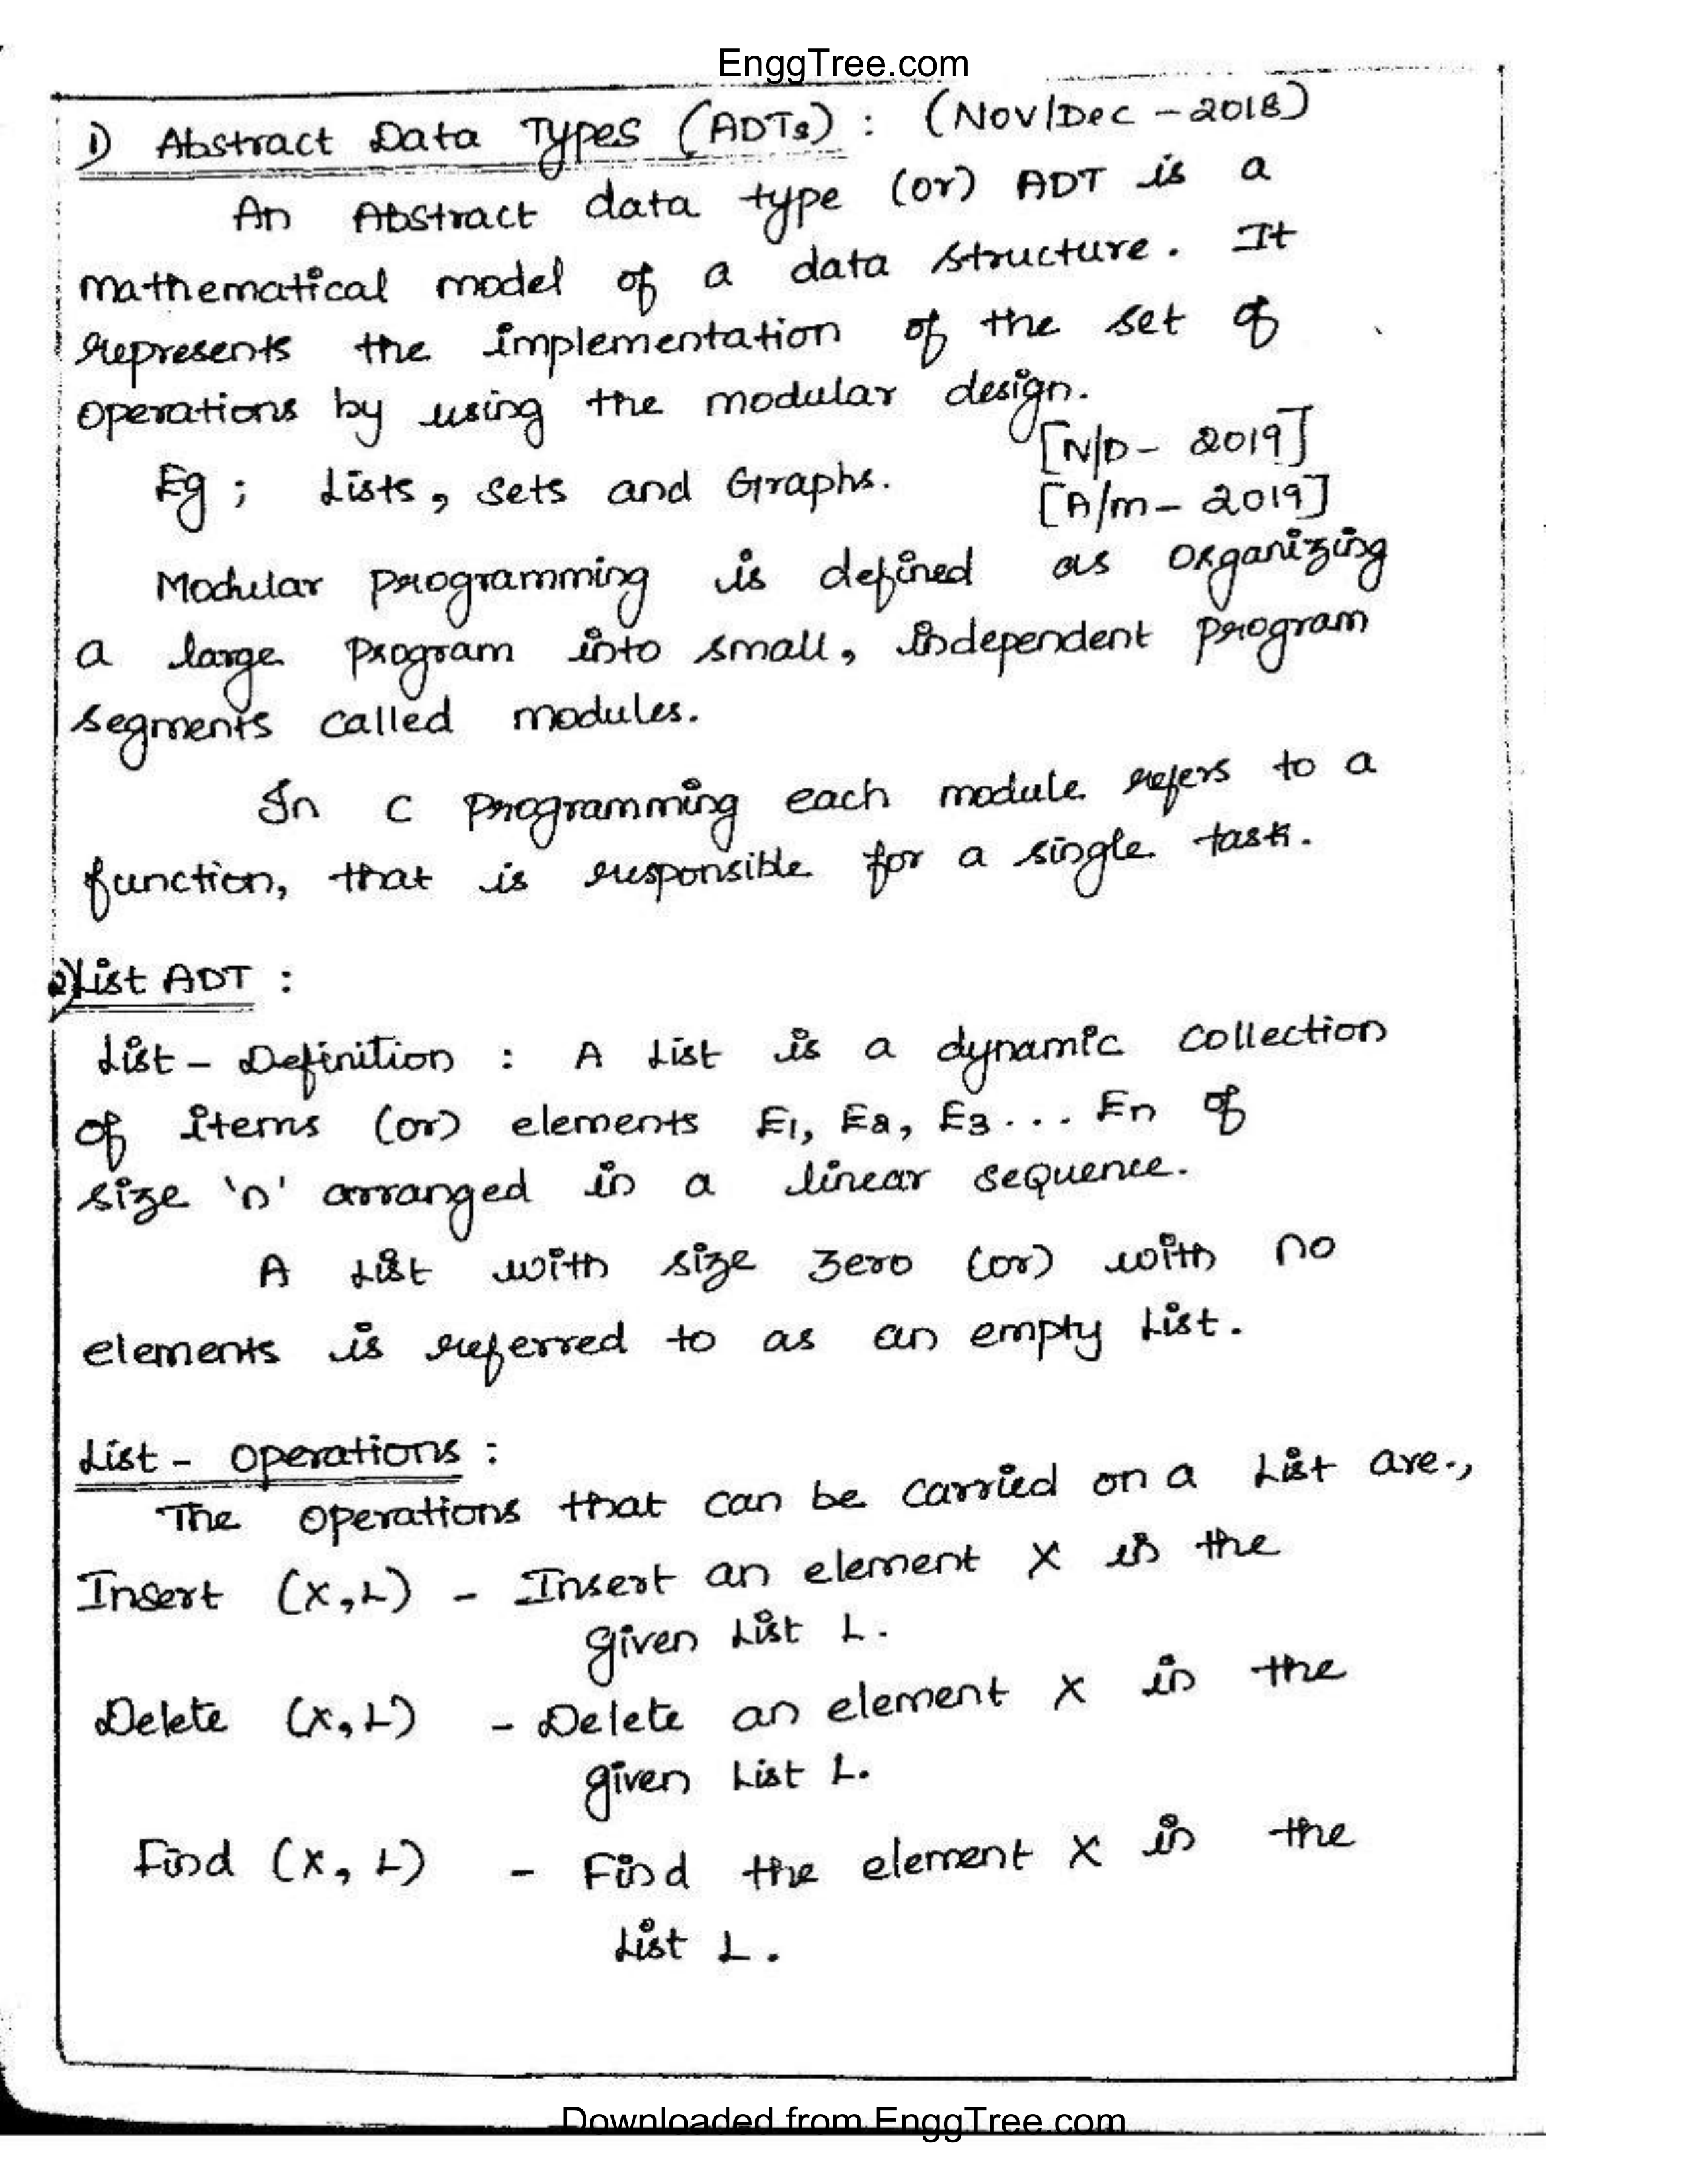 EnggTree.com
1) Abstract Data Types (ADTs) : (Nov/Dec - 2018)
An Abstract data type (or) ADT is a
mathematical model of a data structure. It
represents the implementation of the set of
operations by using the modular design.
[N/D - 2019]
Eg ; Lists, Sets and Graphs.
[A/m - 2019]
Modular programming is defined as organizing
a large program into small, independent program
segments called modules.
In C Programming each module refers to a
function, that is responsible for a single task.
2) List ADT :
List - Definition : A List is a dynamic collection
of items (or) elements E1, E2, E3 ... En of
size 'n' arranged in a linear sequence.
A List with size zero (or) with no
elements is referred to as an empty List.
List - Operations :
The operations that can be carried on a List are.,
Insert (X, L) - Insert an element X in the
given List L.
Delete (X, L) - Delete an element X in the
given List L.
Find (X, L) - Find the element X in the
List L.
Downloaded from EnggTree.com